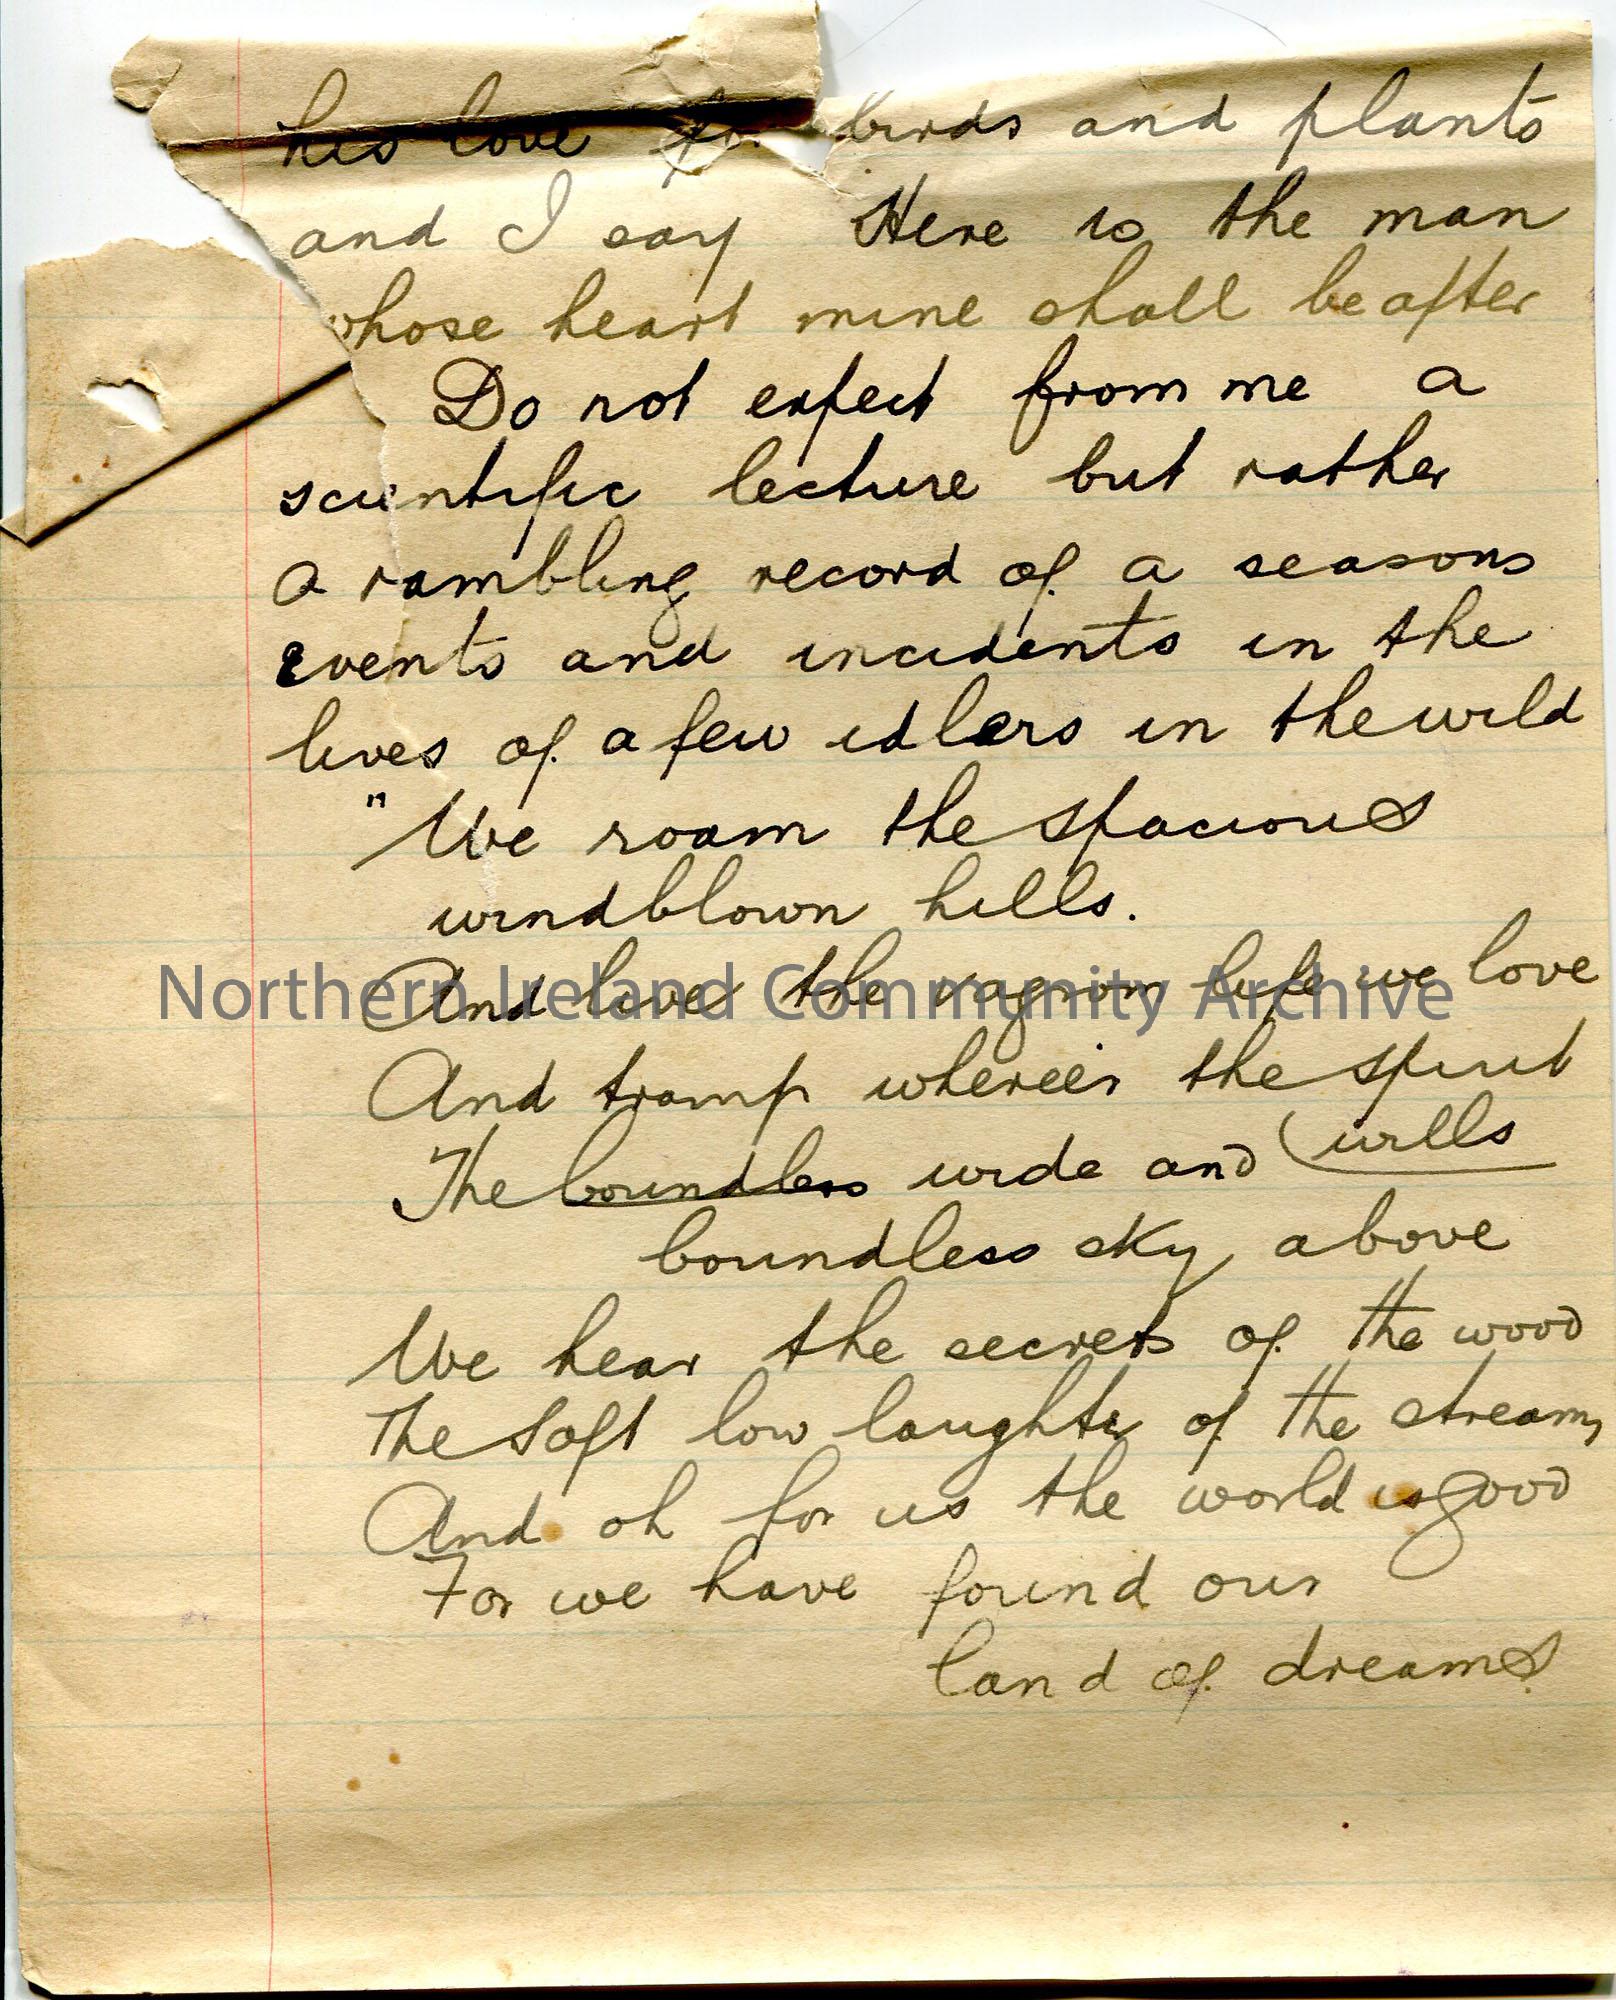 his love for birds and plants
and I say Here is the man
whose heart mine shall be after
Do not expect from me a
scientific lecture but rather
a rambling record of a seasons
events and incidents in the
lives of a few idlers in the wild
"We roam the spacious
windblown hills.
And live the vagrom life we love
Northern Ireland Community Archive
And tramp where'er the spirit
wills
The boundless wide and
boundless sky above
We hear the secrets of the wood
The soft low laughter of the streams
And oh for us the world is good
For we have found our
land of dreams.